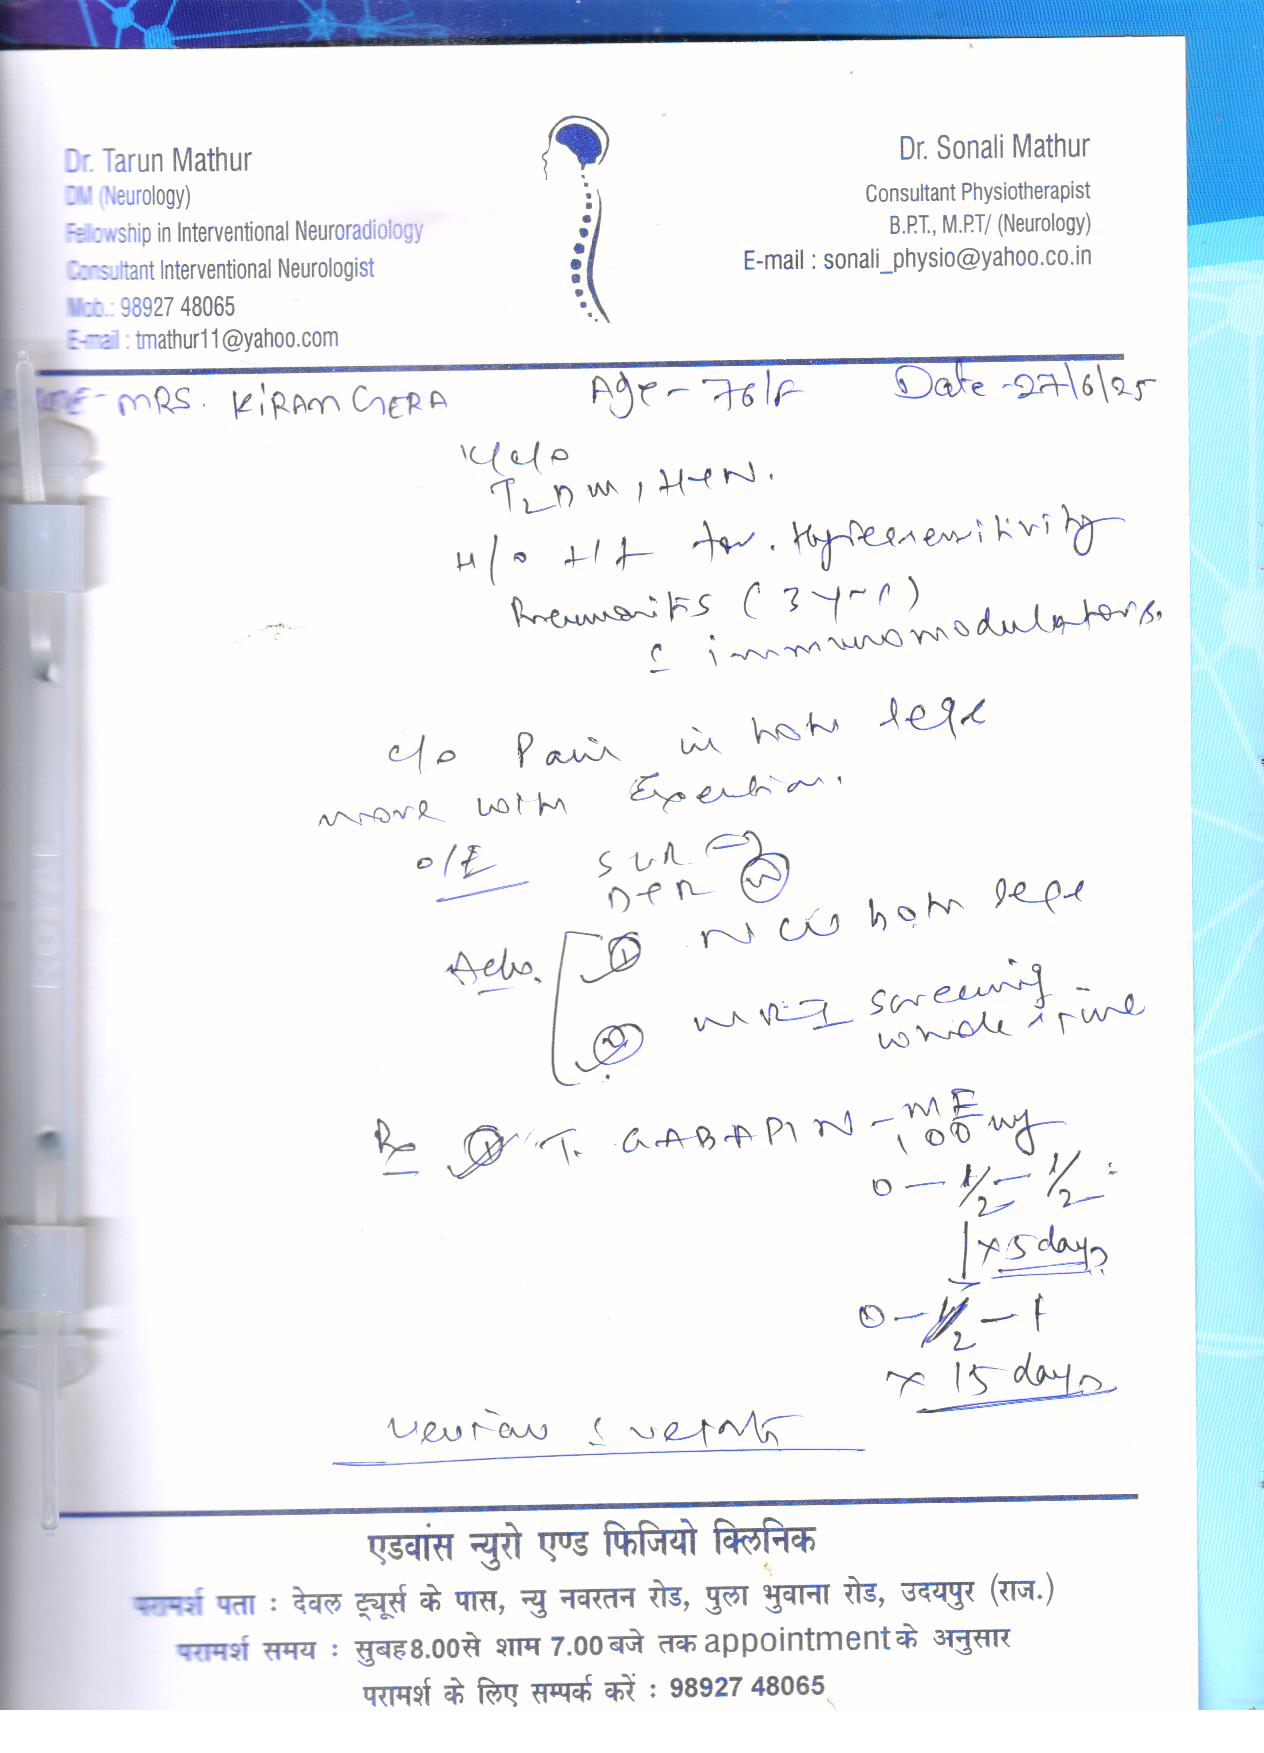 Dr. Tarun Mathur
DM (Neurology)
Fellowship in Interventional Neuroradiology
Consultant Interventional Neurologist
Mob.: 98927 48065
E-mail : tmathur11@yahoo.com
Dr. Sonali Mathur
Consultant Physiotherapist
B.P.T., M.P.T/ (Neurology)
E-mail : sonali_physio@yahoo.co.in
MRS. KIRAN GERA Age - 76/F Date - 27/6/25
K/c/o
T2DM, HTN.
H/o t/t for Hypersensitivity
Pneumonitis (3 yrs)
c immunomodulators.
c/o Pain in both legs
more with Exertion.
O/E SLR
DTR
Adv. ① NCS both legs
② MRI screening
whole spine
Rx ① T. GABAPIN - ME
100 mg
0 — 1/2 — 1/2
x 5 days
0 — 1/2 — 1
x 15 days
Review c reports
एडवांस न्युरो एण्ड फिजियो क्लिनिक
परामर्श पता : देवल ट्यूर्स के पास, न्यु नवरतन रोड, पुला भुवाना रोड, उदयपुर (राज.)
परामर्श समय : सुबह 8.00 से शाम 7.00 बजे तक appointment के अनुसार
परामर्श के लिए सम्पर्क करें : 98927 48065